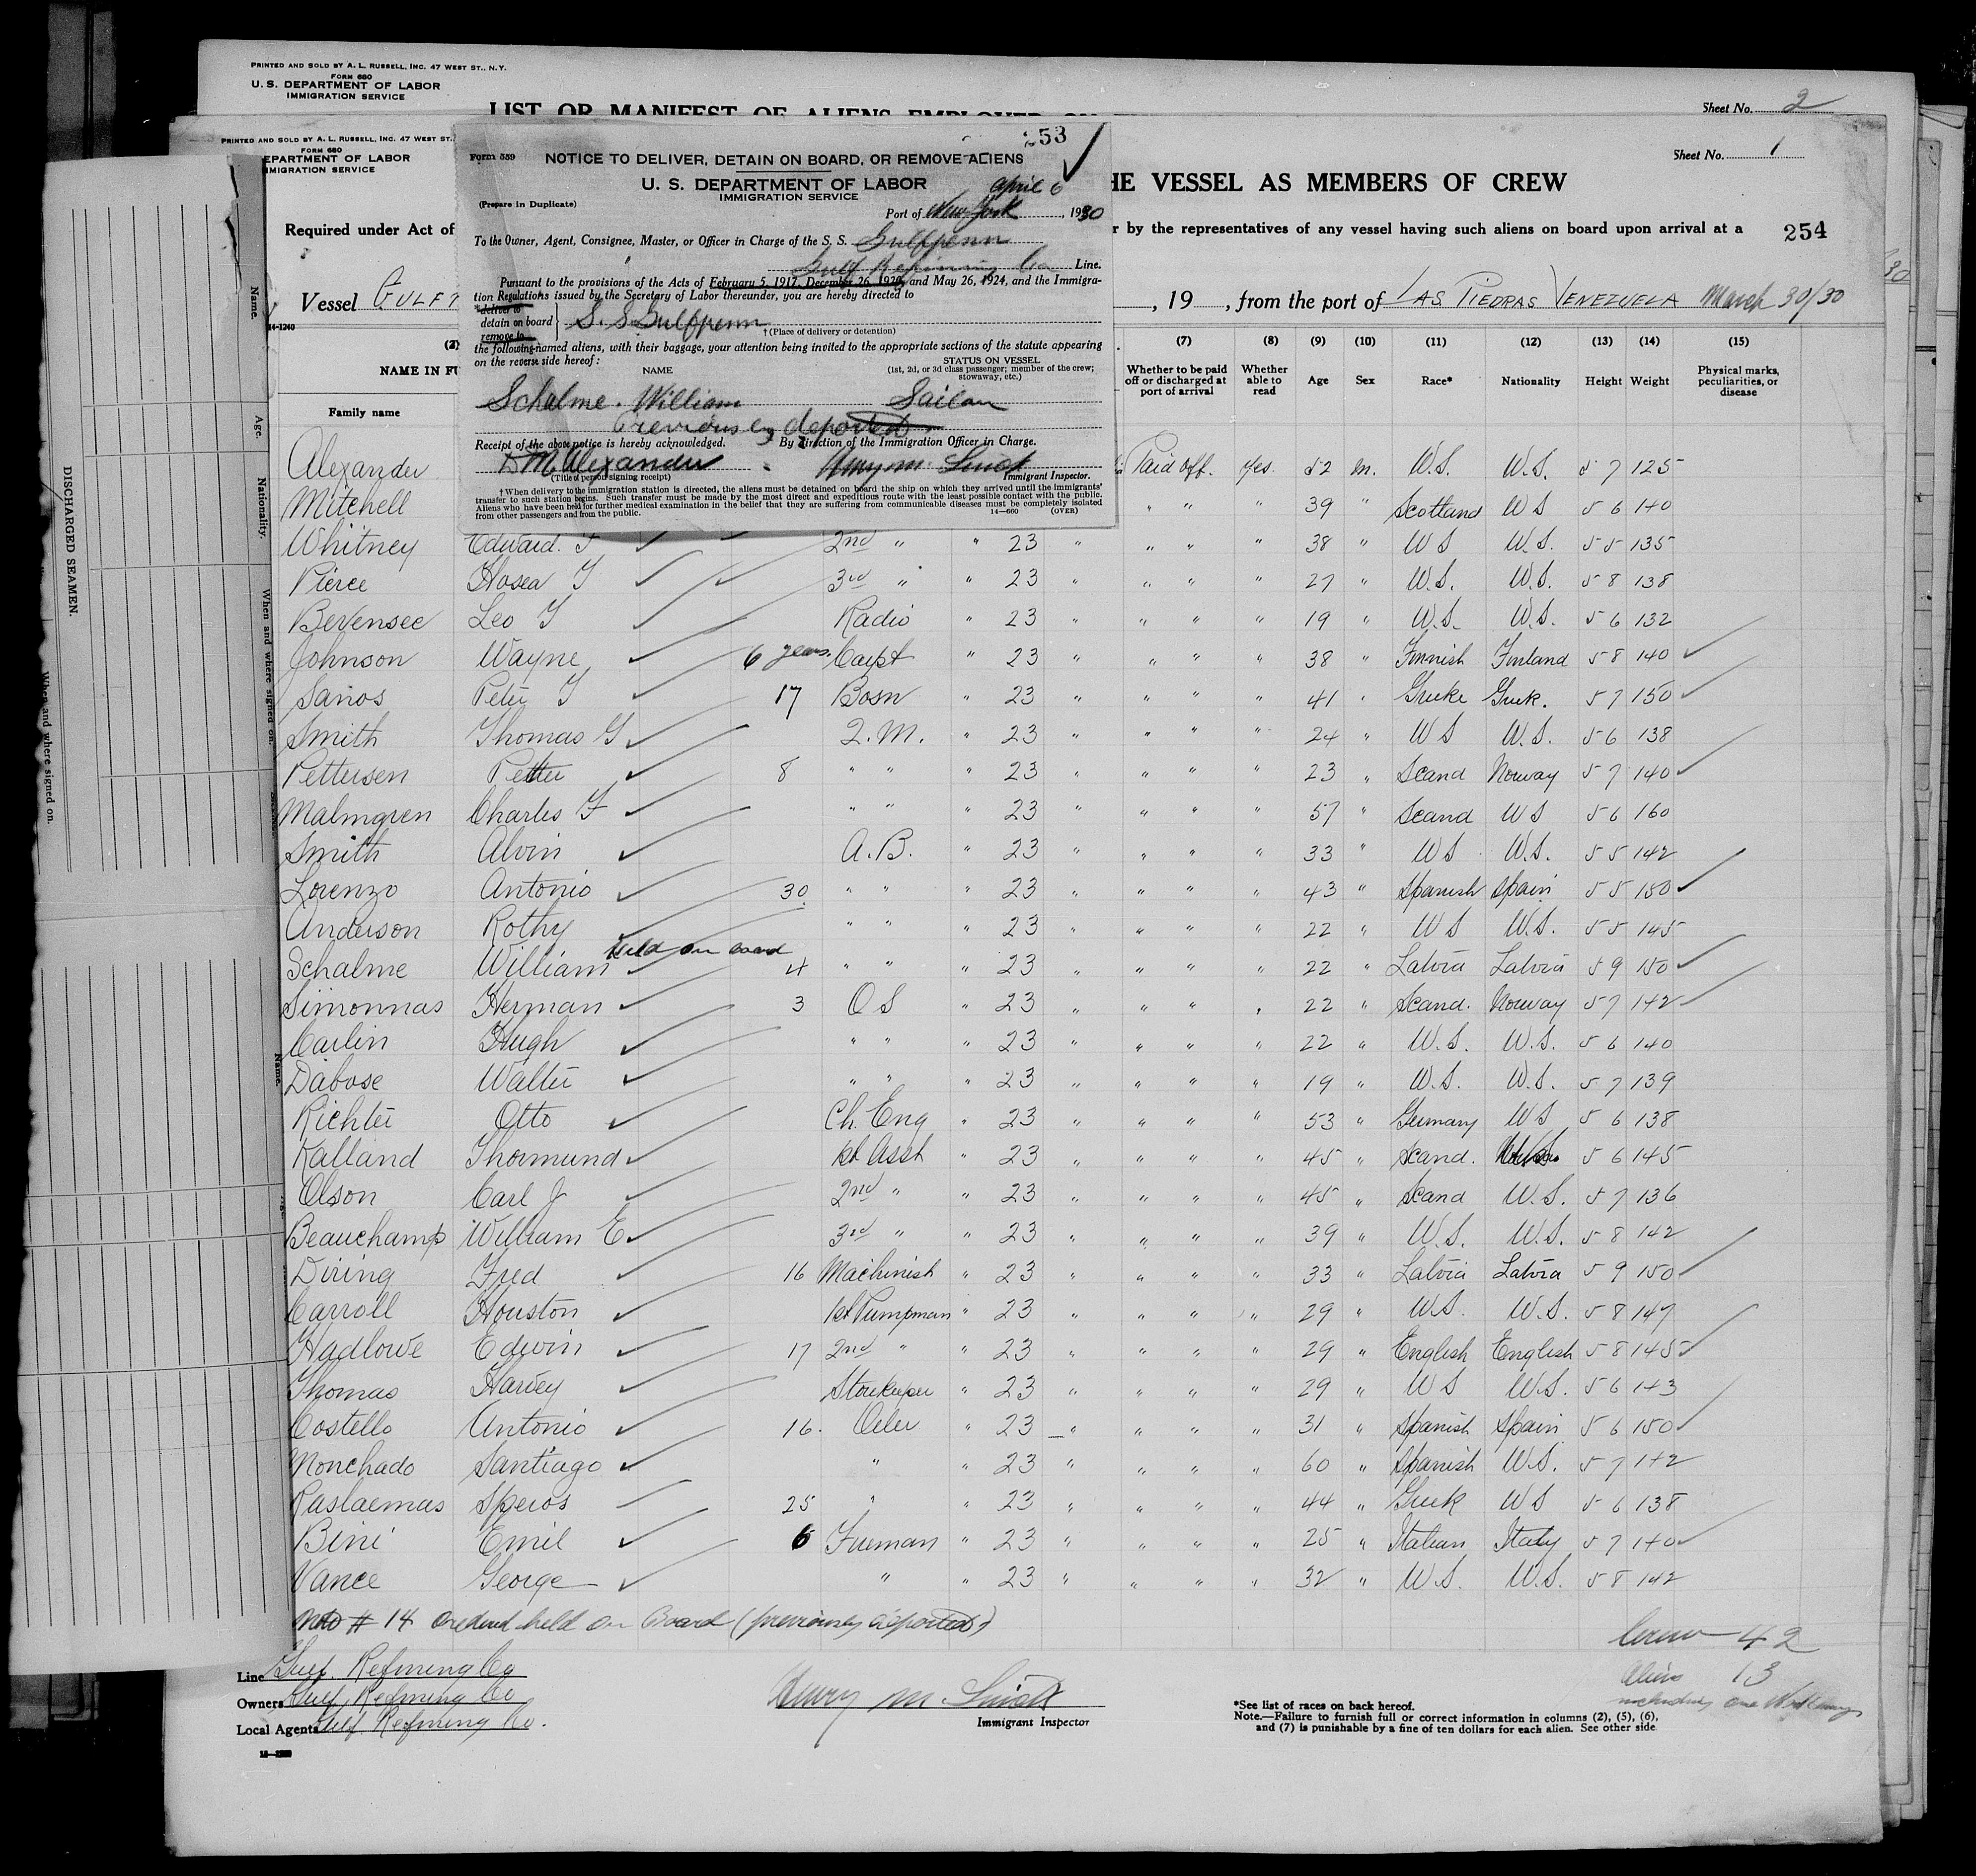 PRINTED AND SOLD BY A. L. RUSSELL, INC. 47 WEST ST., N.Y.
FORM 680
U. S. DEPARTMENT OF LABOR
IMMIGRATION SERVICE
LIST OR MANIFEST OF ALIENS EMPLOYED ON
Sheet No. 2
PRINTED AND SOLD BY A. L. RUSSELL, INC. 47 WEST ST.,
FORM 680
EPARTMENT OF LABOR
MIGRATION SERVICE
Sheet No. 1
HE VESSEL AS MEMBERS OF CREW
Required under Act of
r by the representatives of any vessel having such aliens on board upon arrival at a
254
Vessel GULF
, 19 , from the port of LAS PIEDRAS VENEZUELA March 30/30
14-1240
253
Form 559
NOTICE TO DELIVER, DETAIN ON BOARD, OR REMOVE ALIENS
U. S. DEPARTMENT OF LABOR
IMMIGRATION SERVICE
April 6
(Prepare in Duplicate)
Port of New York, 1930
To the Owner, Agent, Consignee, Master, or Officer in Charge of the S. S. Gulfpenn
Gulf Refining Co Line.
Pursuant to the provisions of the Acts of February 5, 1917, December 26, 1920, and May 26, 1924, and the Immigra-
tion Regulations issued by the Secretary of Labor thereunder, you are hereby directed to
*deliver to
detain on board S. S Gulfpenn
remove to
†(Place of delivery or detention)
the following-named aliens, with their baggage, your attention being invited to the appropriate sections of the statute appearing
on the reverse side hereof:
NAME
STATUS ON VESSEL
(1st, 2d, or 3d class passenger; member of the crew;
stowaway, etc.)
Schalme. William Sailor
Previously deported
Receipt of the above notice is hereby acknowledged. By direction of the Immigration Officer in Charge.
D M Alexander
(Title of person signing receipt)
Immigrant Inspector.
†When delivery to the immigration station is directed, the aliens must be detained on board the ship on which they arrived until the immigrants'
transfer to such station begins. Such transfer must be made by the most direct and expeditious route with the least possible contact with the public.
Aliens who have been held for further medical examination in the belief that they are suffering from communicable diseases must be completely isolated
from other passengers and from the public.
14—660 (OVER)
(2) (7) (8) (9) (10) (11) (12) (13) (14) (15)
NAME IN FU
Family name
Whether to be paid off or discharged at port of arrival
Whether able to read
Age
Sex
Race*
Nationality
Height
Weight
Physical marks, peculiarities, or disease
Alexander Paid off. Yes. 52 m. U.S. U.S. 5 7 125
Mitchell " " " 39 " Scotland U S 5 6 140
Whitney Edward. F 2nd " " 23 " " " " 38 " U S U.S. 5 5 135
Pierce Hosea T 3rd " " 23 " " " " 27 " U.S. U.S. 5 8 138
Bevensee Leo T Radio " 23 " " " " 19 " U.S. U.S. 5 6 132
Johnson Wayne 6 years. Carpt " 23 " " " " 38 " Finnish Finland 5 8 140
Sanos Peter T 17 Bosn " 23 " " " " 41 " Greeke Greek. 5 7 150
Smith Thomas G Q.M. " 23 " " " " 24 " U S U.S. 5 6 138
Pettersen Petter 8 " " " 23 " " " " 23 " Scand Norway 5 7 140
Malmgren Charles F " " " 23 " " " " 57 " Scand U S 5 6 160
Smith Alvin A.B. " 23 " " " " 33 " U S U.S. 5 5 142
Lorenzo Antonio 30 " " " 23 " " " " 43 " Spanish Spain 5 5 150
Anderson Rothy " " " 23 " " " " 22 " U S U.S. 5 5 145
held on board
Schalme William 4 " " " 23 " " " " 22 " Latvia Latvia 5 9 150
Simonnas Herman 3 O S " 23 " " " " 22 " Scand. Norway 5 7 142
Carlin Hugh " " " 23 " " " " 22 " U.S. U.S. 5 6 140
Dabose Walter " " " 23 " " " " 19 " U.S. U.S. 5 7 139
Richter Otto Ch. Eng " 23 " " " " 53 " Germany U S 5 6 138
Kalland Thormund 1st Asst " 23 " " " " 45 " Scand. 5 6 145
Olson Carl J 2nd " " 23 " " " " 45 " Scand U.S. 5 7 136
Beauchamp William E 3rd " " 23 " " " " 39 " U.S. U.S. 5 8 142
Diring Fred 16 Machinist " 23 " " " " 33 " Latvia Latvia 5 9 150
Carroll Houston 1st Pumpman " 23 " " " " 29 " U.S. U.S. 5 8 147
Hadlowe Edwin 17 2nd " " 23 " " " " 29 " English English 5 8 145
Thomas Harvey Storekeeper " 23 " " " " 29 " U S U.S. 5 6 143
Costello Antonio 16. Oiler " 23 " " " " 31 " Spanish Spain 5 6 150
Monchado Santiago " " 23 " " " " 60 " Spanish U.S. 5 7 142
Raslaemas Speros 25 " " 23 " " " " 44 " Greek U S 5 6 138
Bini Emil 6 Fireman " 23 " " " " 25 " Italian Italy 5 7 140
Vance George " " 23 " " " " 32 " U.S. U.S. 5 8 142
# 14 ordered held on Board (previously deported)
Crew — 42
Aliens 13
including one
Line Gulf Refining Co
Owners Gulf Refining Co
Local Agents Gulf Refining Co.
Immigrant Inspector
*See list of races on back hereof.
Note.—Failure to furnish full or correct information in columns (2), (5), (6),
and (7) is punishable by a fine of ten dollars for each alien. See other side
DISCHARGED SEAMEN.
Name.
Age.
Nationality.
When and where signed on.
When and where signed on.
Name.